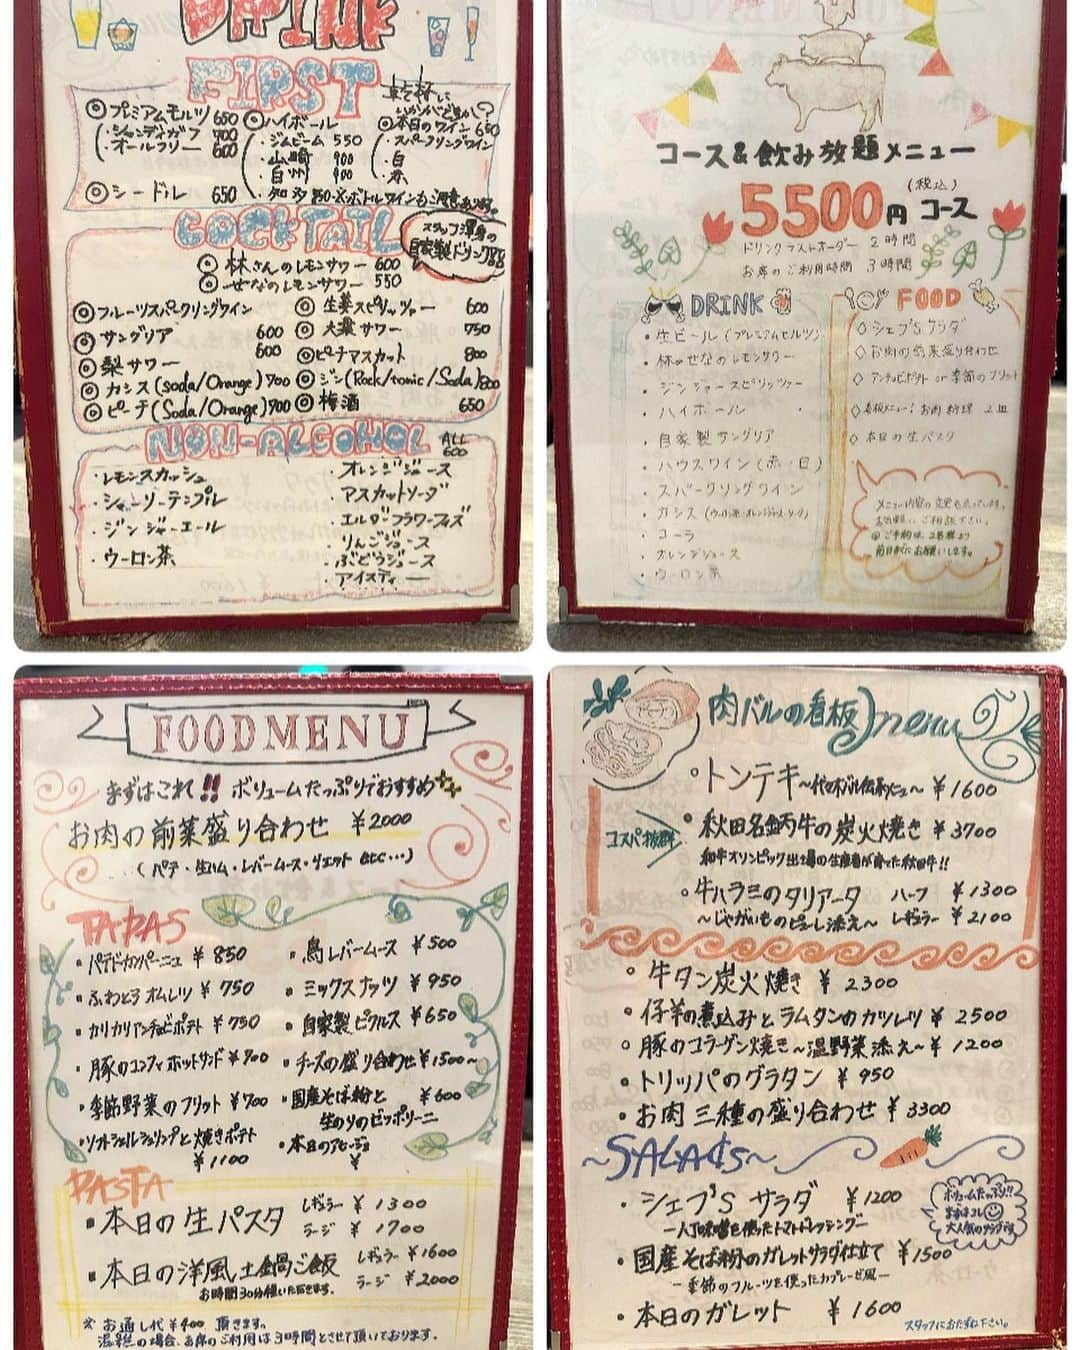 DRINK
FIRST
乾杯に
いかがですか?
◎プレミアムモルツ 650
・シャンディガフ 700
・オールフリー 600
◎シードル 650
◎ハイボール
・ジムビーム 550
・山崎 900
・白州 900
・知多
◎本日のワイン 650
・スパークリングワイン
・白
・赤
COCKTAIL
スタッフ渾身の
自家製ドリンク!!
◎林さんのレモンサワー 600
◎せなのレモンサワー 550
◎フルーツスパークリングワイン
◎サングリア 600
◎梨サワー 600
◎カシス(soda/Orange) 700
◎ピーチ(Soda/Orange) 700
◎生姜スピリッツァー 600
◎大葉サワー 750
◎ピーチマスカット 800
◎ジン(Rock/tonic/Soda) 800
◎梅酒 650
NON-ALCOHOL
ALL
600
・レモンスカッシュ
・シャーリーテンプル
・ジンジャーエール
・ウーロン茶
・オレンジジュース
・アスカットソーダ
・エルダーフラワーフィズ
・りんごジュース
・ぶどうジュース
・アイスティー
コース&飲み放題メニュー
5500円コース
(税込)
ドリンクラストオーダー 2時間
お席のご利用時間 3時間
DRINK
・生ビール(プレミアムモルツ)
・林orせなのレモンサワー
・ジンジャースピリッツァー
・ハイボール
・自家製サングリア
・ハウスワイン(赤・白)
・スパークリングワイン
・カシス(ウーロン茶・オレンジ・ソーダ)
・コーラ
・オレンジジュース
・ウーロン茶
FOOD
◇シェフ'Sサラダ
◇お肉の前菜盛り合わせ
◇アンチョビポテト or 季節のフリット
◇看板メニュー!お肉料理 2皿
◇本日の生パスタ
FOOD MENU
まずはこれ!! ボリュームたっぷりでおすすめ
お肉の前菜盛り合わせ ¥2000
(パテ・生ハム・レバームース・リエット etc…)
TAPAS
・パテドカンパーニュ ¥850
・ふわとろオムレツ ¥750
・カリカリアンチョビポテト ¥750
・豚のコンフィホットサンド ¥900
・季節野菜のフリット ¥700
・ソフトシェルシュリンプと焼きポテト
¥1100
・鳥レバームース ¥500
・ミックスナッツ ¥950
・自家製ピクルス ¥650
・チーズの盛り合わせ ¥1500〜
・国産そば粉と ¥600
生のりのゼッポリーニ
・本日のアヒージョ
¥
PASTA
・本日の生パスタ レギュラー ¥1300
ラージ ¥1700
・本日の洋風土鍋ご飯 レギュラー ¥1600
ラージ ¥2000
お時間30分程いただきます。
※お通し代¥400 頂きます。
混雑の場合、お席のご利用は3時間とさせて頂いております。
肉バルの看板menu
・トンテキ ¥1600
コスパ抜群
・秋田名鋼牛の炭火焼き ¥3700
和牛オリンピック出場の生産者が育てた秋田牛!!
・牛ハラミのタリアータ ハーフ ¥1300
〜じゃがいものピューレ添え〜 レギュラー ¥2100
・牛タン炭火焼き ¥2300
・仔羊の煮込みとラムタンのカツレツ ¥2500
・豚のコラーゲン焼き〜温野菜添え〜 ¥1200
・トリッパのグラタン ¥950
・お肉三種の盛り合わせ ¥3300
〜SALAdS〜
・シェフ'Sサラダ ¥1200
ー八丁味噌を使ったトマトドレッシングー
ボリュームたっぷり!!
まずはコレ
大人気のサラダです
・国産そば粉のガレットサラダ仕立て ¥1500
ー季節のフルーツを使ったカプレーゼ風ー
・本日のガレット ¥1600
スタッフにおたずね下さい。